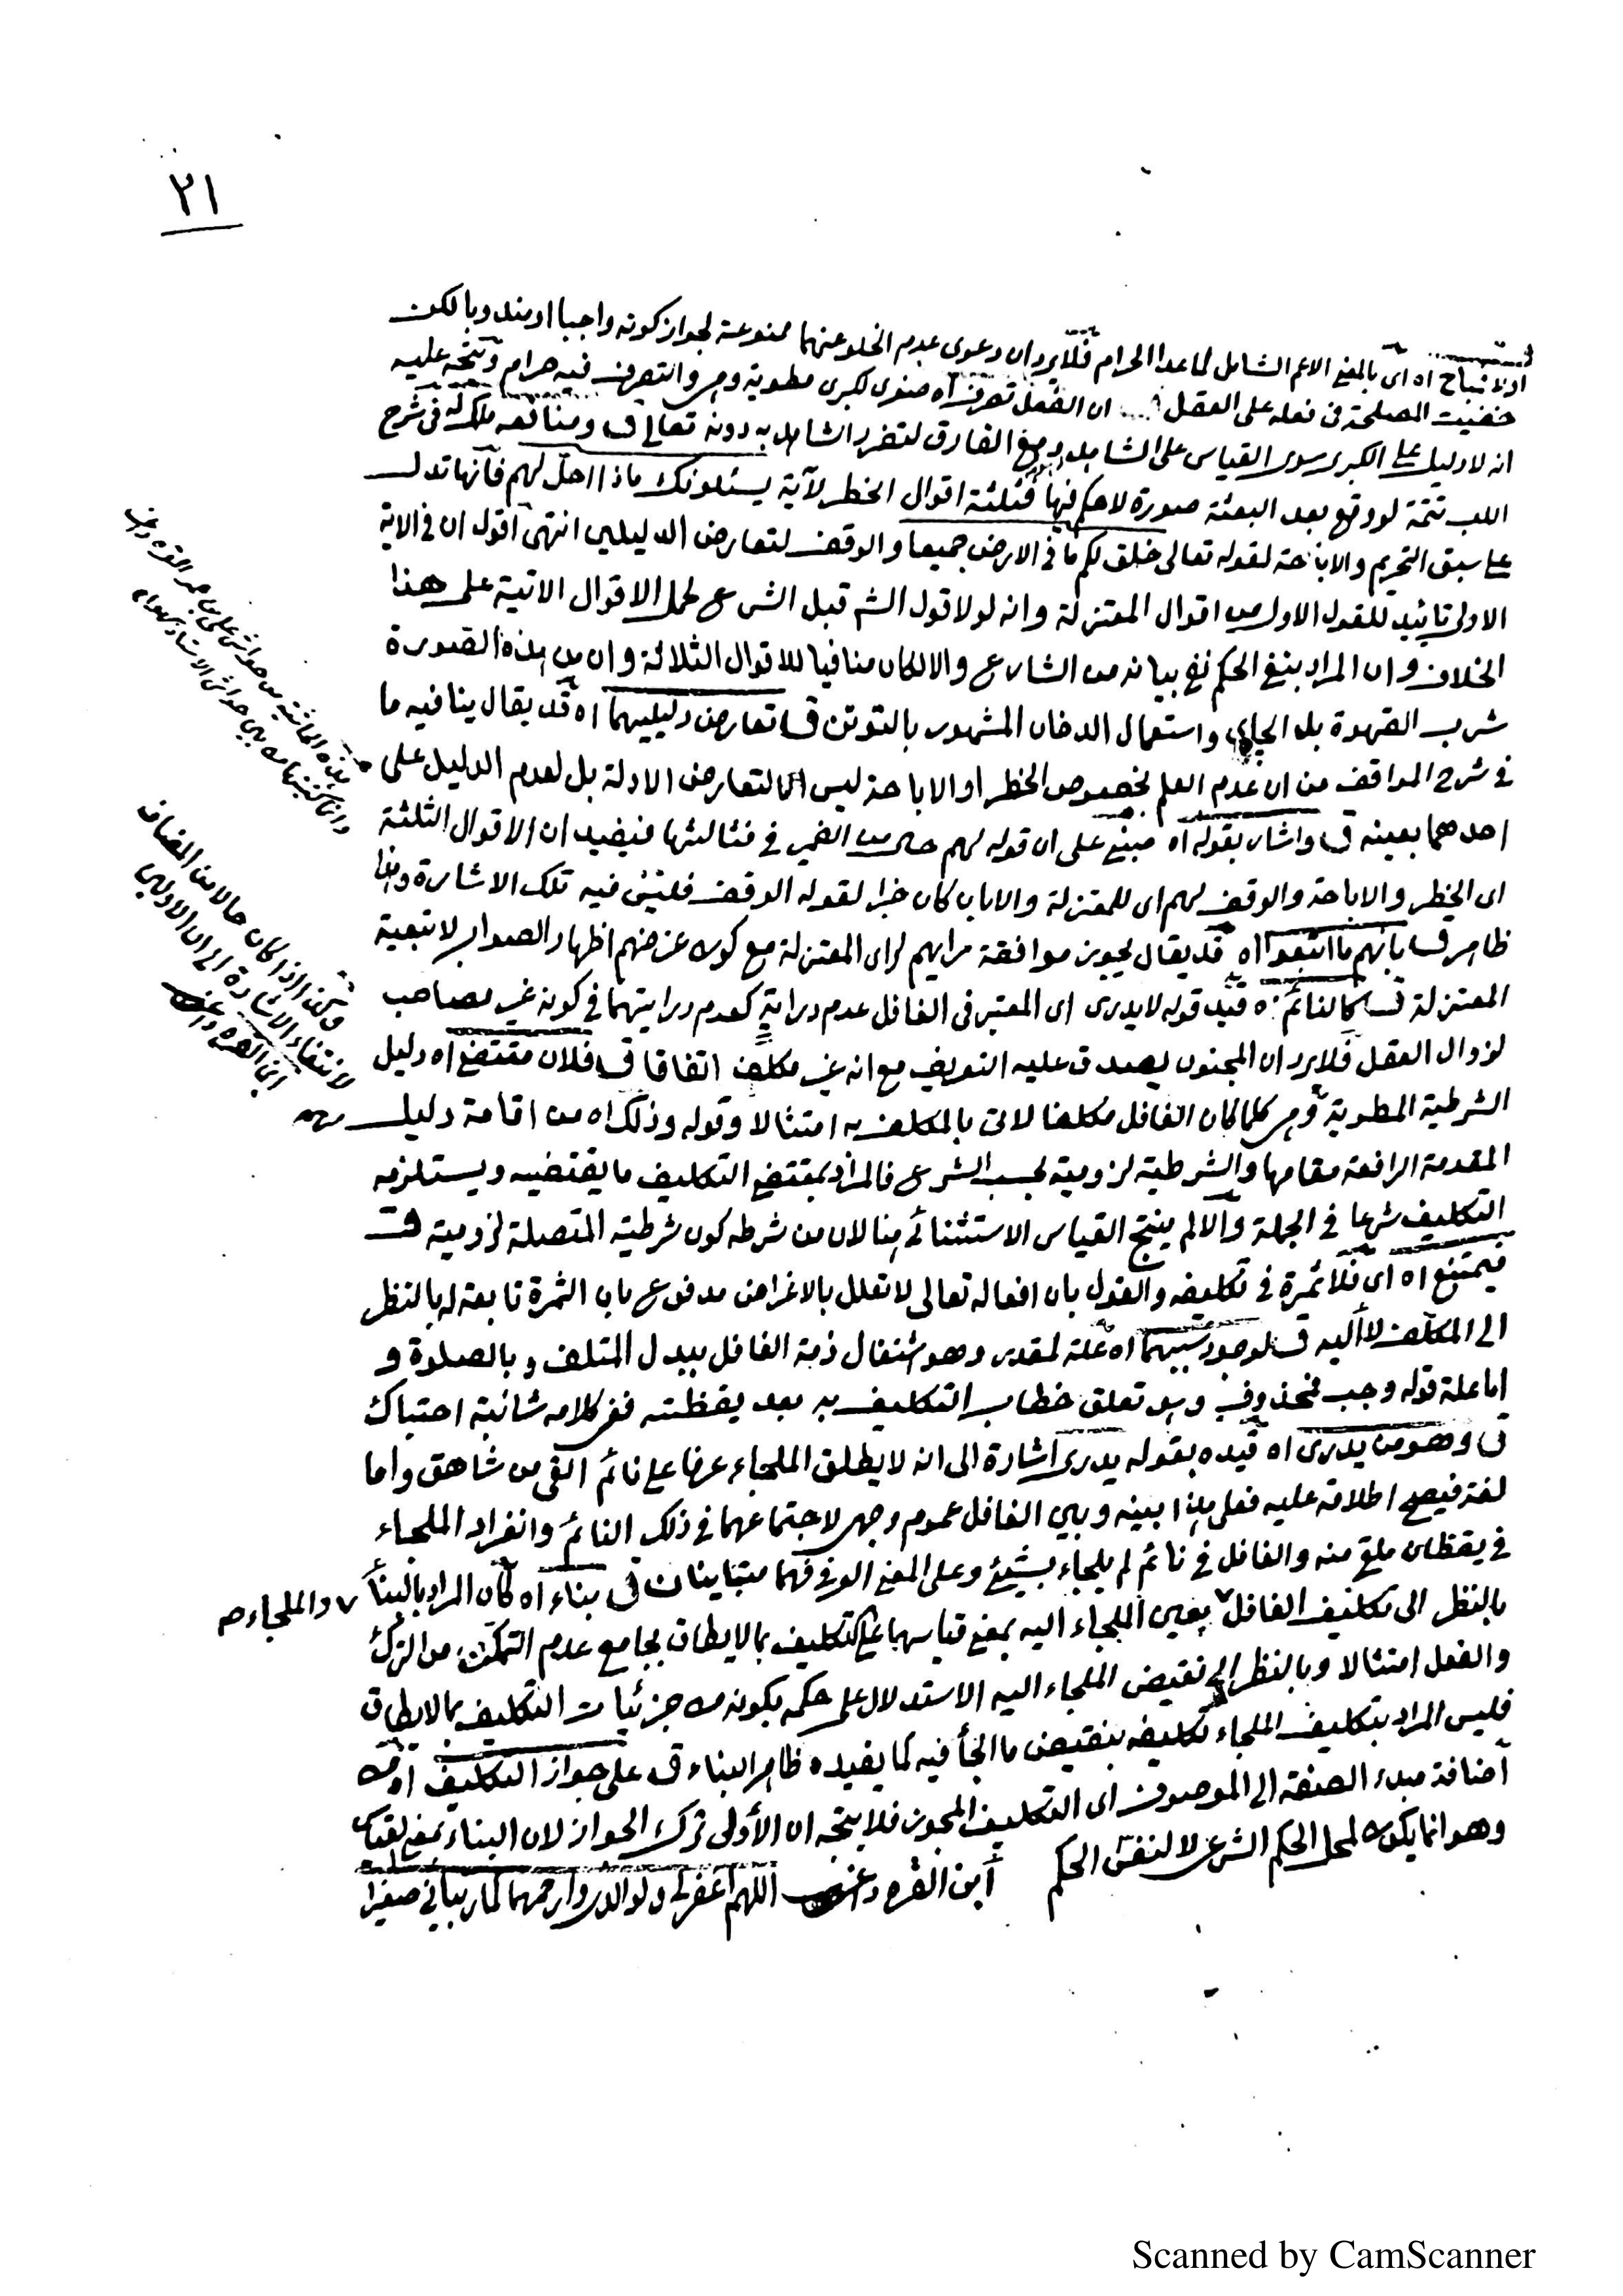 ٢١
اولا فيباح اه اى بالمعنى الاعم الشامل لما عدا الحرام فلا يرد ان دعوى عدم الخلو عنهما ممنوعة لجواز كونه واجبا او مندوبا لكن
خفيت المصلحة فى فعله على العقل ان الفعل تصرف اه صغرى لكبرى مطوية وهى والتصرف فيه حرام ويتجه عليه
انه لا دليل على الكبرى سوى القياس على الشاهد وهو مع الفارق لتضرر الشاهد به دونه تعالى ق ومنافعه ملك له فى شرح
اللب تتمة لو وقع بعد البعثة صورة لا حكم فيها فثلثة اقوال الحظر لآية يسئلونك ماذا احل لهم فانها تدل
على سبق التحريم والاباحة لقوله تعالى خلق لكم ما فى الارض جميعا والوقف لتعارض الدليلين انتهى اقول ان فى الاية
الاولى تائيد للقول الاول من اقوال المعتزلة وانه لولا قول الش قبل الشرع لحمل الاقوال الاتية على هذا
الخلاف وان المراد بنفى الحكم نفى بيانه من الشارع والا لكان منافيا للاقوال الثلاثة وان من هذه الصورة
شرب القهوة بل الجاى واستعمال الدخان المشهور بالتوتن ق تعارض دليليهما اه قد يقال ينافيه ما
فى شرح المواقف من ان عدم العلم بخصوص الحظر او الاباحة ليس لتعارض الادلة بل لعدم الدليل على
احدهما بعينه ق واشار بقوله اه مبنى على ان قوله لهم حال من الضمير فى فثالثها فيفيد ان الاقوال الثلثة
اى الحظر والاباحة والوقف لهم اى للمعتزلة والا بان كان خبرا لقوله الوقف فليس فيه تلك الاشارة وايضا
ظاهر ق بانهم ما اتبعوا اه قد يقال يجوز موافقة رايهم لراى المعتزلة مع كون غرضهم اظهار الصواب لا تبعية
المعتزلة ق كالنائم اه قيد قوله لا يدرى اى المعتبر فى الغافل عدم دراية كعدم درايتهما فى كونه غير مصاحب
لزوال العقل فلا يرد ان المجنون يصدق عليه التعريف مع انه غير مكلف اتفاقا ق فلان مقتضى اه دليل
الشرطية المطوية وهى كلما كان الغافل مكلفا لاتى بالمكلف به امتثالا وقوله وذلك اه من اقامة دليل
المقدمة الرافعة مقامها والشرطية لزومية بحسب الشرع فالمراد بمقتضى التكليف ما يقتضيه ويستلزمه
التكليف شرعا فى الجملة والا لم ينتج القياس الاستثنائى هنا لان من شرطه كون شرطيته المتصلة لزومية ق
فيمتنع اه اى فلا ثمرة فى تكليفه والقول بان افعاله تعالى لا تعلل بالاغراض مدفوع بان الثمرة تابعة له بالنظر
الى المكلف لا اليه ق لوجود سببهما اه علة لمقدر وهو اشتغال ذمة الغافل ببدل المتلف وبالصلوة و
اما علة قوله وجب فمحذوف وهو تعلق خطاب التكليف به بعد يقظته ففى كلامه شائبة احتباك
ق وهو من يدرى اه قيده بقوله يدرى اشارة الى انه لا يطلق الملجاء عرفا على نائم القى من شاهق واما
لغة فيصح اطلاقه عليه فعلى هذا بينه وبين الغافل عموم وجهى لاجتماعهما فى ذلك النائم وانفراد الملجاء
فى يقظان ملقى منه والغافل فى نائم لم يلجاء بشيئ وعلى المعنى العرفى فهما متباينان ق بناء اه كان المراد بالبناء
بالنظر الى تكليف الغافل بعين الملجاء اليه بمعنى قياسهما على التكليف بما لا يطاق بجامع عدم التمكن من الترك
والملجاء صح
والفعل امتثالا وبالنظر الى نقيض الملجاء اليه الاستدلال على حكمه بكونه من جزئيات التكليف بما لا يطاق
فليس المراد بتكليف الملجاء تكليفه بنقيض ما الجأ فيه كما يفيده ظاهر البناء ق على جواز التكليف اه من
اضافة مبدء الصفة الى الموصوف اى التكليف المجوز فلا يتجه ان الأولى ترك الجواز لان البناء بمعنى القياس
وهو انما يكون لمحل الحكم الشرعى لا لنفس الحكم ابن القره داغى اللهم اغفر لى ولوالدى وارحمهما كما ربيانى صغيرا
هذه الحاشية من حواشى على بن عمر القره داغى
وانما كتبتها من بين حواشى الاستاذ سهوا
ولكن اذا كان حالا من المضاف
لانتفاء الاشارة الى ان الاولين
ابن القره داغى